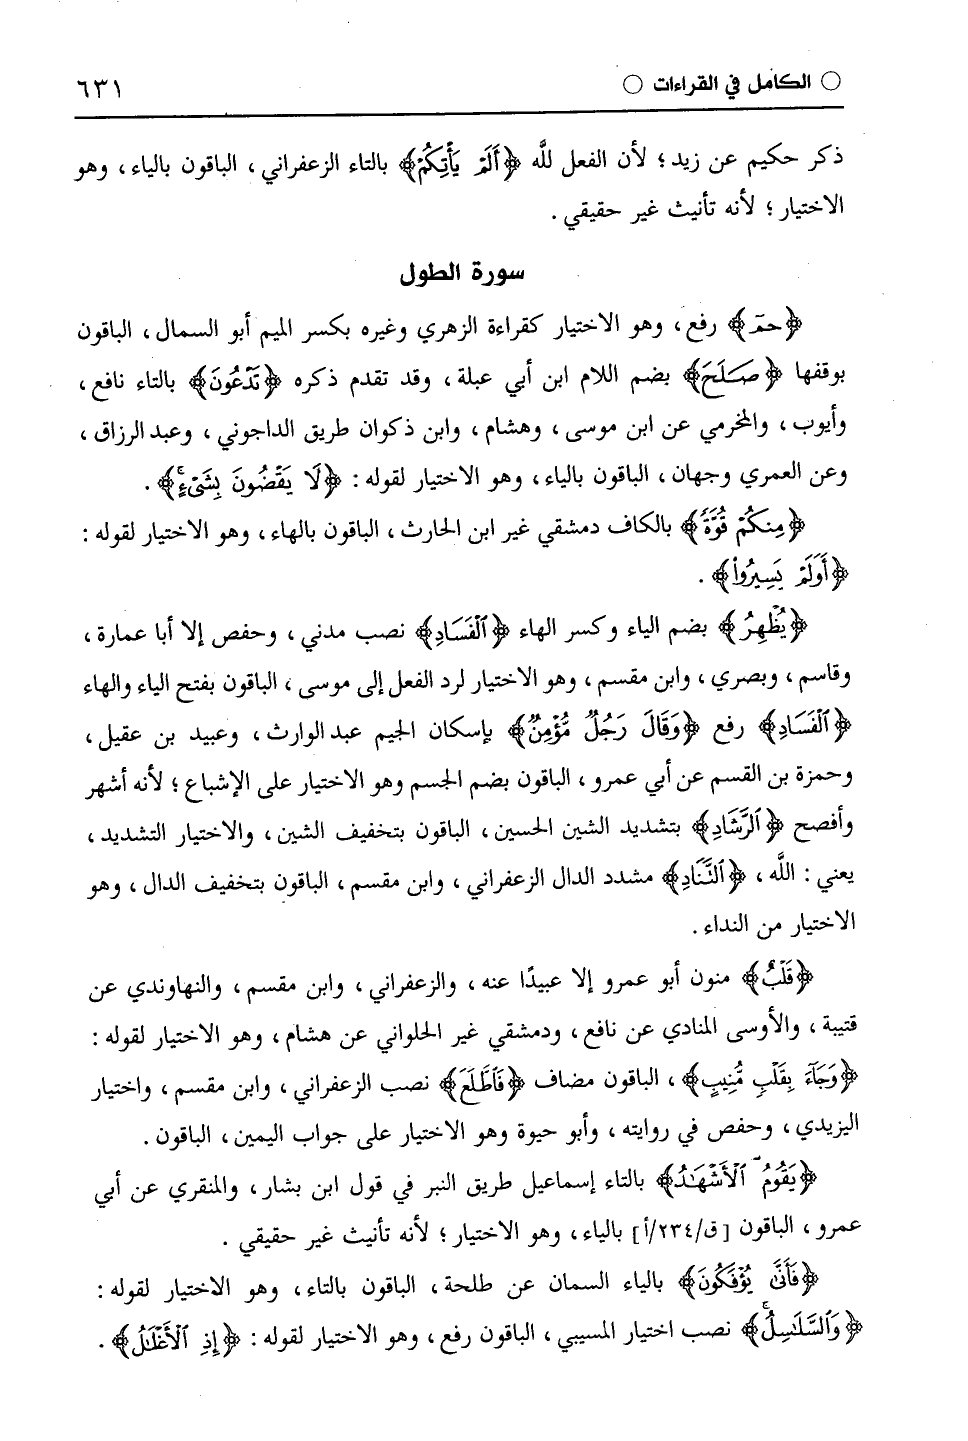 ○ الكامل في القراءات ○ ٦٣١
ذكر حكيم عن زيد؛ لأن الفعل لله ﴿أَلَمْ يَأْتِكُمْ﴾ بالتاء الزعفراني، الباقون بالياء، وهو
الاختيار؛ لأنه تأنيث غير حقيقي.
سورة الطول
﴿حمٓ﴾ رفع، وهو الاختيار كقراءة الزهري وغيره بكسر الميم أبو السمال، الباقون
بوقفها ﴿صَلَحَ﴾ بضم اللام ابن أبي عبلة، وقد تقدم ذكره ﴿تَدْعُونَ﴾ بالتاء نافع،
وأيوب، والمخرمي عن ابن موسى، وهشام، وابن ذكوان طريق الداجوني، وعبد الرزاق،
وعن العمري وجهان، الباقون بالياء، وهو الاختيار لقوله: ﴿لَا يَقْضُونَ بِشَيْءٍ﴾.
﴿مِنكُمْ قُوَّةً﴾ بالكاف دمشقي غير ابن الحارث، الباقون بالهاء، وهو الاختيار لقوله:
﴿أَوَلَمْ يَسِيرُوا۟﴾.
﴿يُظْهِرُ﴾ بضم الياء وكسر الهاء ﴿ٱلْفَسَادِ﴾ نصب مدني، وحفص إلا أبا عمارة،
وقاسم، وبصري، وابن مقسم، وهو الاختيار لرد الفعل إلى موسى، الباقون بفتح الياء والهاء
﴿ٱلْفَسَادِ﴾ رفع ﴿وَقَالَ رَجُلٌ مُّؤْمِنٌ﴾ بإسكان الجيم عبد الوارث، وعبيد بن عقيل،
وحمزة بن القسم عن أبي عمرو، الباقون بضم الجسم وهو الاختيار على الإشباع؛ لأنه أشهر
وأفصح ﴿ٱلرَّشَادِ﴾ بتشديد الشين الحسين، الباقون بتخفيف الشين، والاختيار التشديد،
يعني: الله، ﴿ٱلتَّنَادِ﴾ مشدد الدال الزعفراني، وابن مقسم، الباقون بتخفيف الدال، وهو
الاختيار من النداء.
﴿قَلْبٍ﴾ منون أبو عمرو إلا عبيدًا عنه، والزعفراني، وابن مقسم، والنهاوندي عن
قتيبة، والأوسى المنادي عن نافع، ودمشقي غير الحلواني عن هشام، وهو الاختيار لقوله:
﴿وَجَآءَ بِقَلْبٍ مُّنِيبٍ﴾، الباقون مضاف ﴿فَٱطَّلَعَ﴾ نصب الزعفراني، وابن مقسم، واختيار
اليزيدي، وحفص في روايته، وأبو حيوة وهو الاختيار على جواب اليمين، الباقون.
﴿يَقُومُ ٱلْأَشْهَـٰدُ﴾ بالتاء إسماعيل طريق النبر في قول ابن بشار، والمنقري عن أبي
عمرو، الباقون [ق/٢٣٤/أ] بالياء، وهو الاختيار؛ لأنه تأنيث غير حقيقي.
﴿فَأَنَّىٰ يُؤْفَكُونَ﴾ بالياء السمان عن طلحة، الباقون بالتاء، وهو الاختيار لقوله:
﴿وَٱلسَّلَـٰسِلُ﴾ نصب اختيار المسيبي، الباقون رفع، وهو الاختيار لقوله: ﴿إِذِ ٱلْأَغْلَـٰلُ﴾.